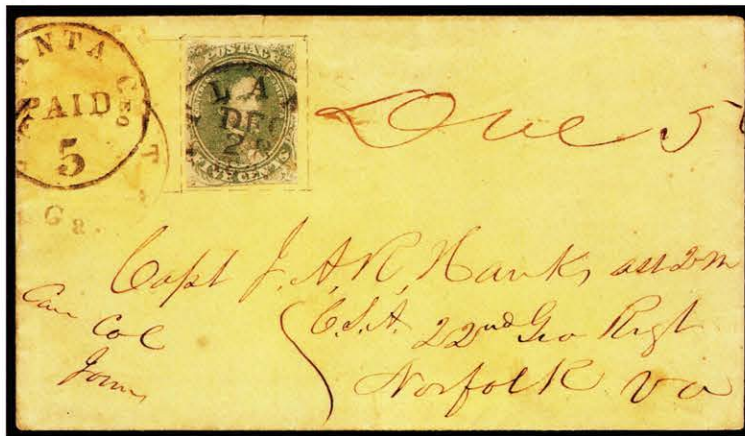 ANTA GEO
PAID
5
T
Ga.
POSTAGE
LA
DEC
24
FIVE CENTS
Due 5
Capt J. A. R. Hanks
C.S.A. 22nd Geo Regt
Norfolk Va
Care Col
Jones